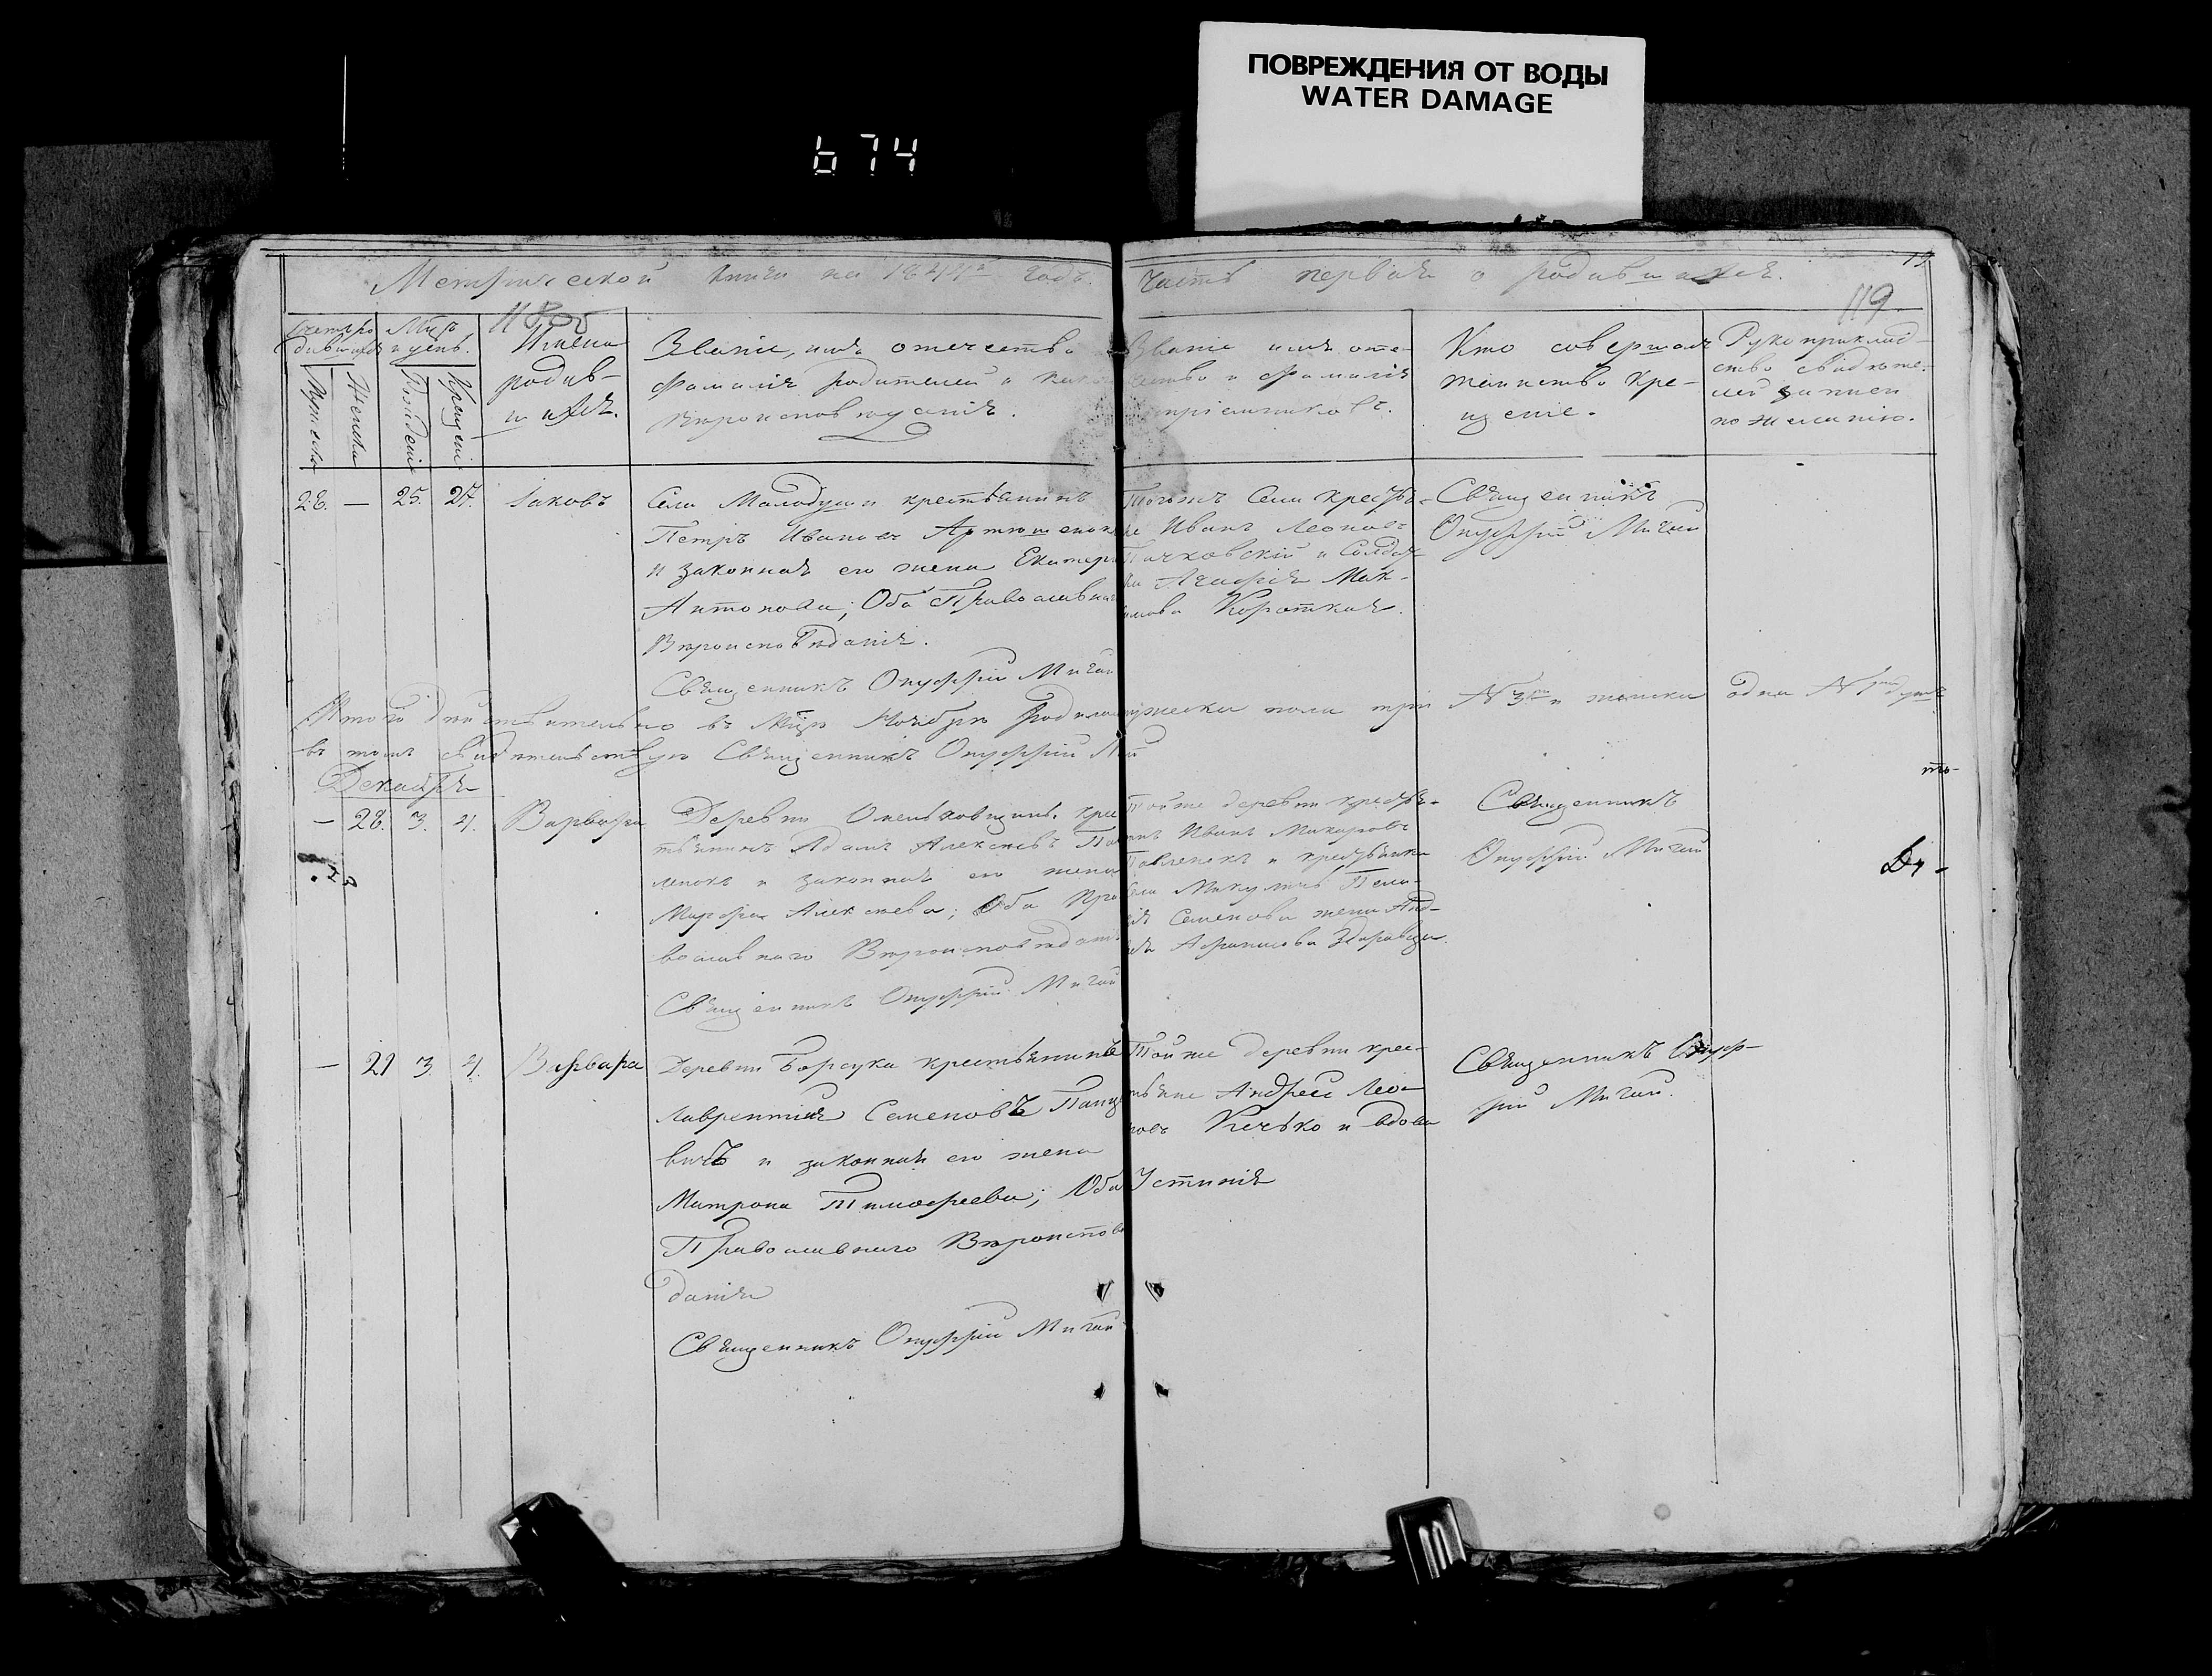 ПОВРЕЖДЕНИЯ ОТ ВОДЫ
WATER DAMAGE
674
Метрической книги на 1844й годъ.
Часть первая о родившихся.
119
Мцъ и день.
Имена родив-
шихся.
Званіе, имя отечество
Фамилія родителей и како
вѣроисповѣданія.
Званіе имя оте-
чество и фамилія
пріемниковъ.
Кто совершалъ
таинство кре-
щеніе.
Рукоприклад-
ство свидѣте-
лей записи
по желанію.
Мужеска
Женска
Рожденіе
Крещеніе
28. — 25. 27. Іаковъ
Села Малодуши крестьянинъ
Петръ Ивановъ Артюшенок
и законная его жена Екатери
Антонова; Оба Православнаго
Вѣроисповѣданія.
Священникъ Онуфрій Мигай
Тогожъ Села крестья-
не Иванъ Леонов
Пачковскій и Солдат
ка Агафія Мак-
имова Короткая.
Священникъ
Онуфрій Мигай
Итого дѣйствительно въ Мцѣ Ноябрѣ родилось мужеска пола три № 3 и женска одна № 1
въ томъ свидѣтельствую Священникъ Онуфрій
Декабрь
— 28. 3. 4. Варвара
Деревни Омельковщины крес
тьянинъ Адамъ Алексѣевъ Пав
ленокъ и законная его жена
Марфа Алексѣева; Оба Пра
вославнаго Вѣроисповѣдан
Священникъ Онуфрій Мигай
Тойже деревни крестья-
нинъ Иванъ Макаровъ
Павленокъ и крестьянка
Села Микуличъ Пела-
гія Семенова жена Анд-
рея
Священникъ
Онуфрій Мигай
— 29 3. 4. Варвара
Деревни Борсука крестьянинъ
Лаврентій Семеновъ Панце
вичъ и законная его жена
Матрона Тимофеева; Оба
Православнаго Вѣроисповѣ
данія
Священникъ Онуфрій Мигай
Тойже деревни крес-
тьяне Андрей Леон
новъ Кечько и вдова
Устинія
Священникъ Онуф-
рій Мигай.